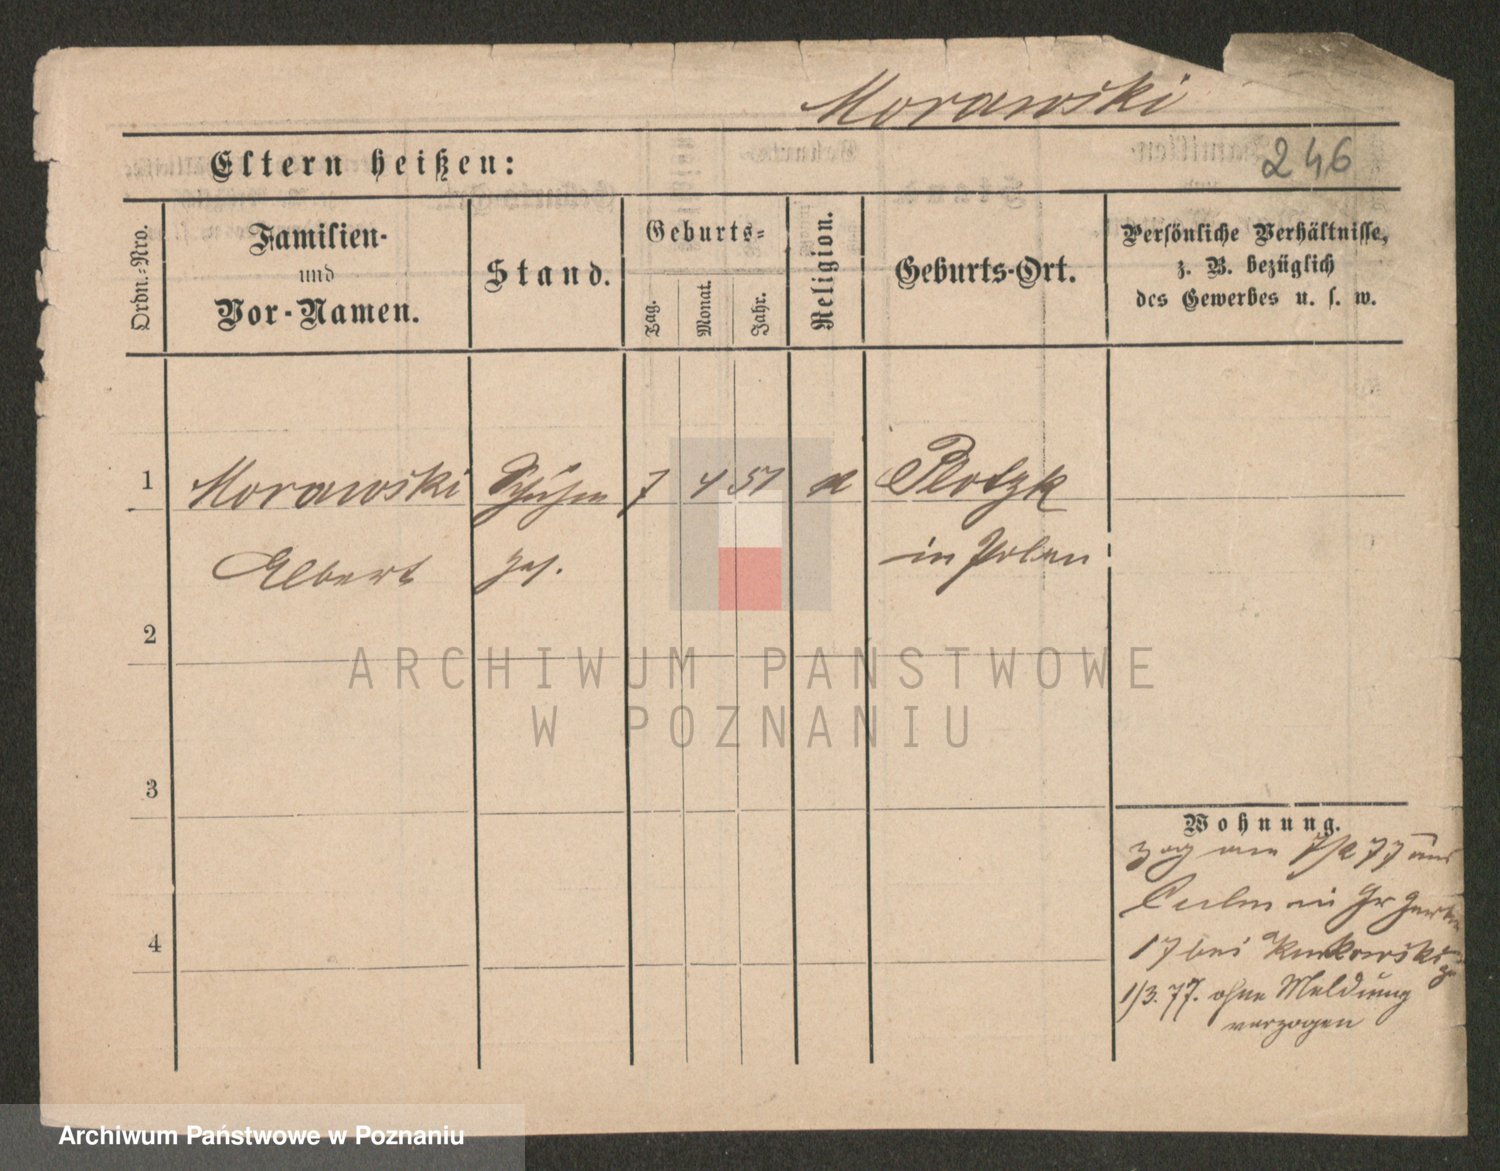 Morawski
Eltern heißen:
246
Ordn.-Nro.
Familien-
und
Vor-Namen.
Stand.
Geburts-
Tag.
Monat.
Jahr.
Religion.
Geburts-Ort.
Persönliche Verhältnisse,
z. B. bezüglich
des Gewerbes u. s. w.
1 Morawski 7 4 51 Plotzk
Albert in Polen
2
3
4
Wohnung.
zog am 77 aus
Culm in Gr
17 bei
1/3. 77. ohne Meldung
verzogen
ARCHIWUM PAŃSTWOWE
W POZNANIU
Archiwum Państwowe w Poznaniu